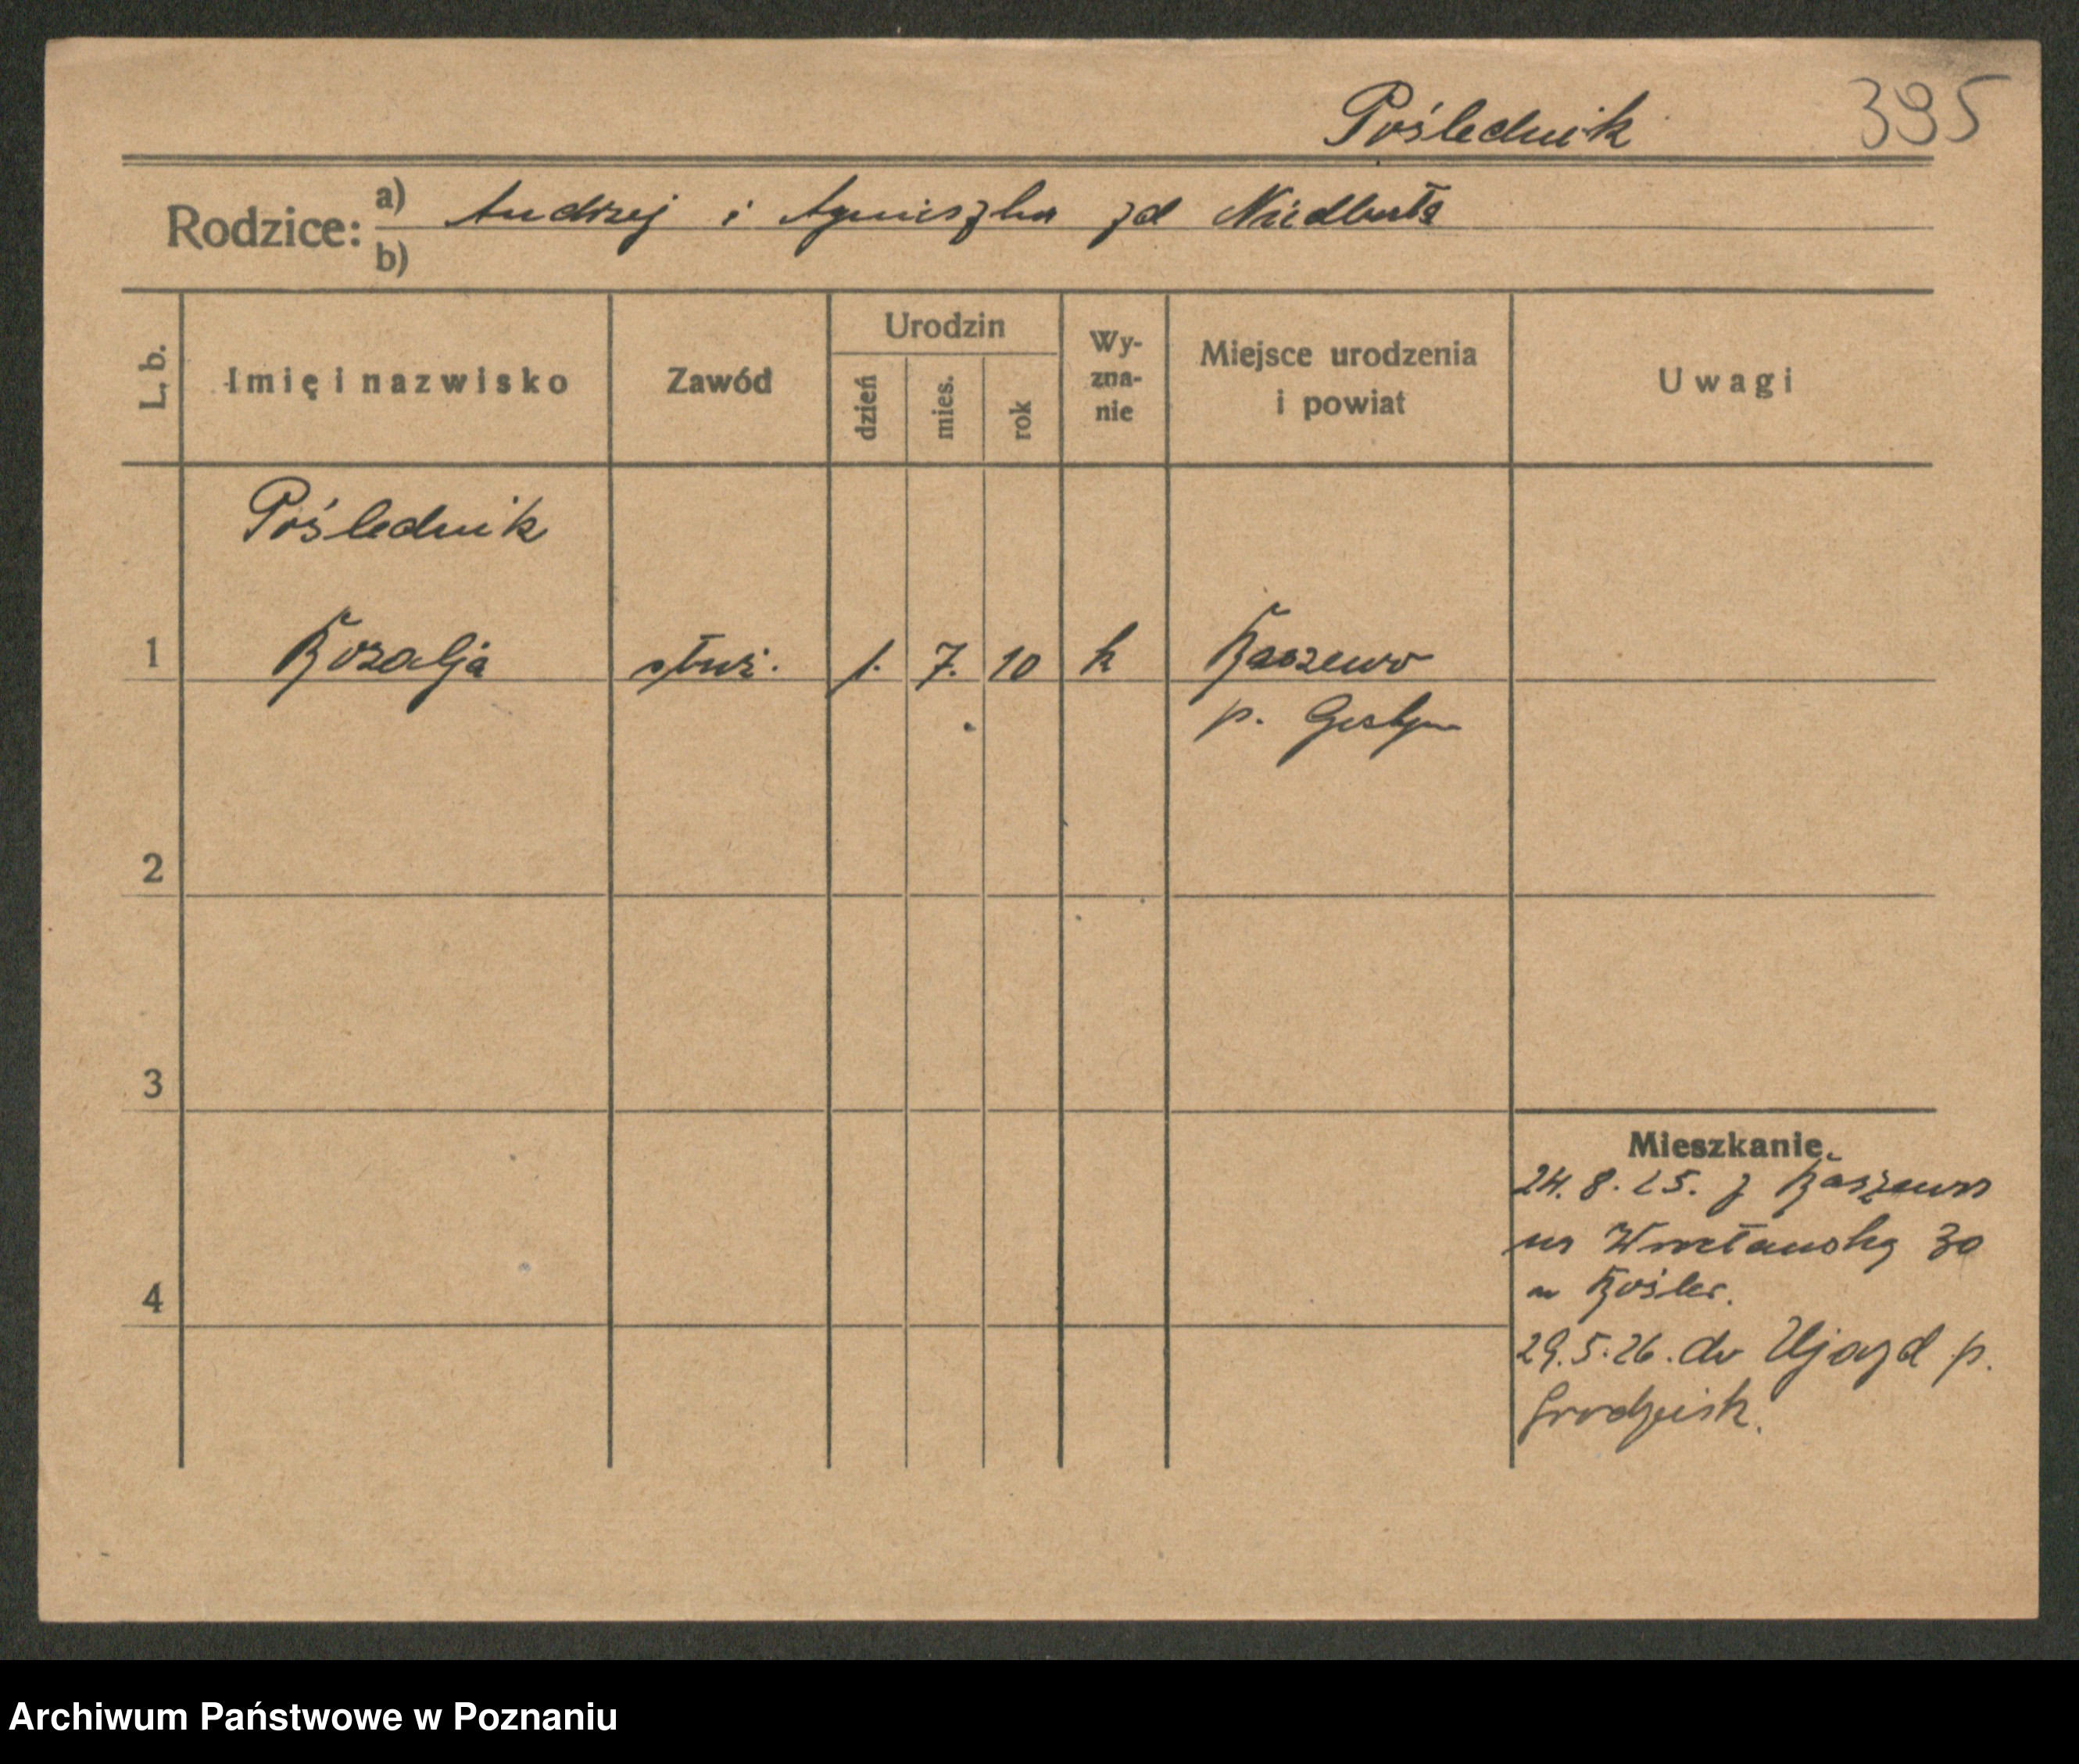 Poślednik 395
Rodzice: a) Andrzej i Agnieszka zd Niedbała
b)
L. b. Imię i nazwisko Zawód Urodzin dzień mies. rok Wyznanie Miejsce urodzenia i powiat Uwagi
Poślednik
1 Rozalja służ. 1. 7. 10 k Raszewo
p. Gostyn
2
3
4
Mieszkanie
24. 8. 25. z Raszewo
na Wrocławską 30
29. 5. 26. do Ujazd p.
Grodzisk.
Archiwum Państwowe w Poznaniu